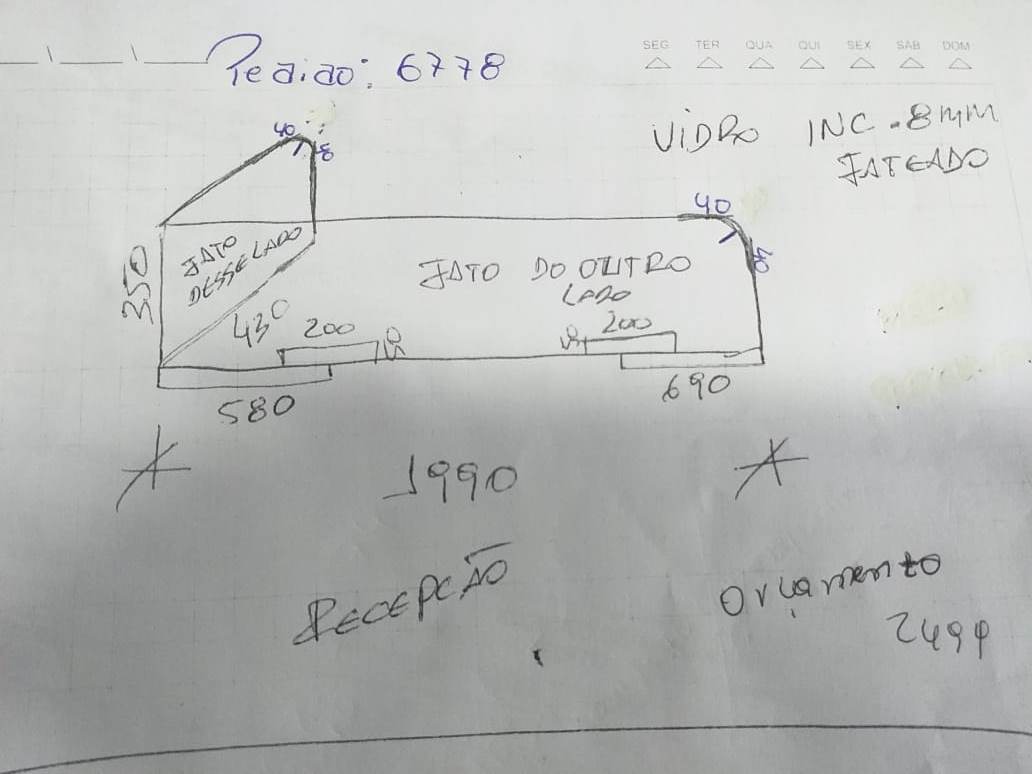 SEG TER QUA QUI SEX SAB DOM
Pedido: 6778
VIDRO INC. 8MM
JATEADO
40
40
350
JATO
DESSE LADO
JATO DO OUTRO
LADO
430
200
50
50
200
580
690
1990
RECEPÇÃO
Orçamento